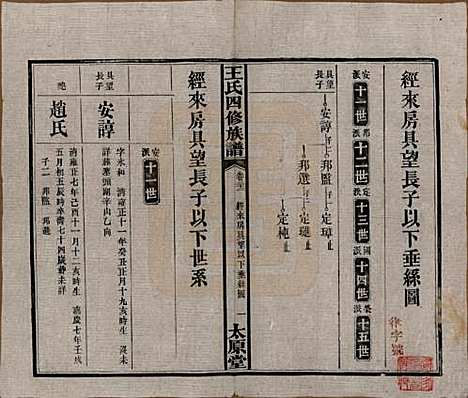 經來房具望長子以下垂絲圖
安派十一世
邦派十二世
定派十三世
國派十四世
榮派十五世
具望長子
安諄
邦監
定璋
邦選
定璉
定桅
王氏四修族譜
卷二十二
經來房具望以下垂絲圖
一
太原堂
經來房具望長子以下世系
安派十一世
具望長子
安諄
字永和 清雍正十一年癸丑正月十九亥時生 歿未詳葬老頭廟辛山乙向
配
趙氏
清雍正七年己酉十一月十二亥時生 嘉慶七年壬戌四月初五辰時卒壽七十四歲葬未詳
子二 邦監 邦選